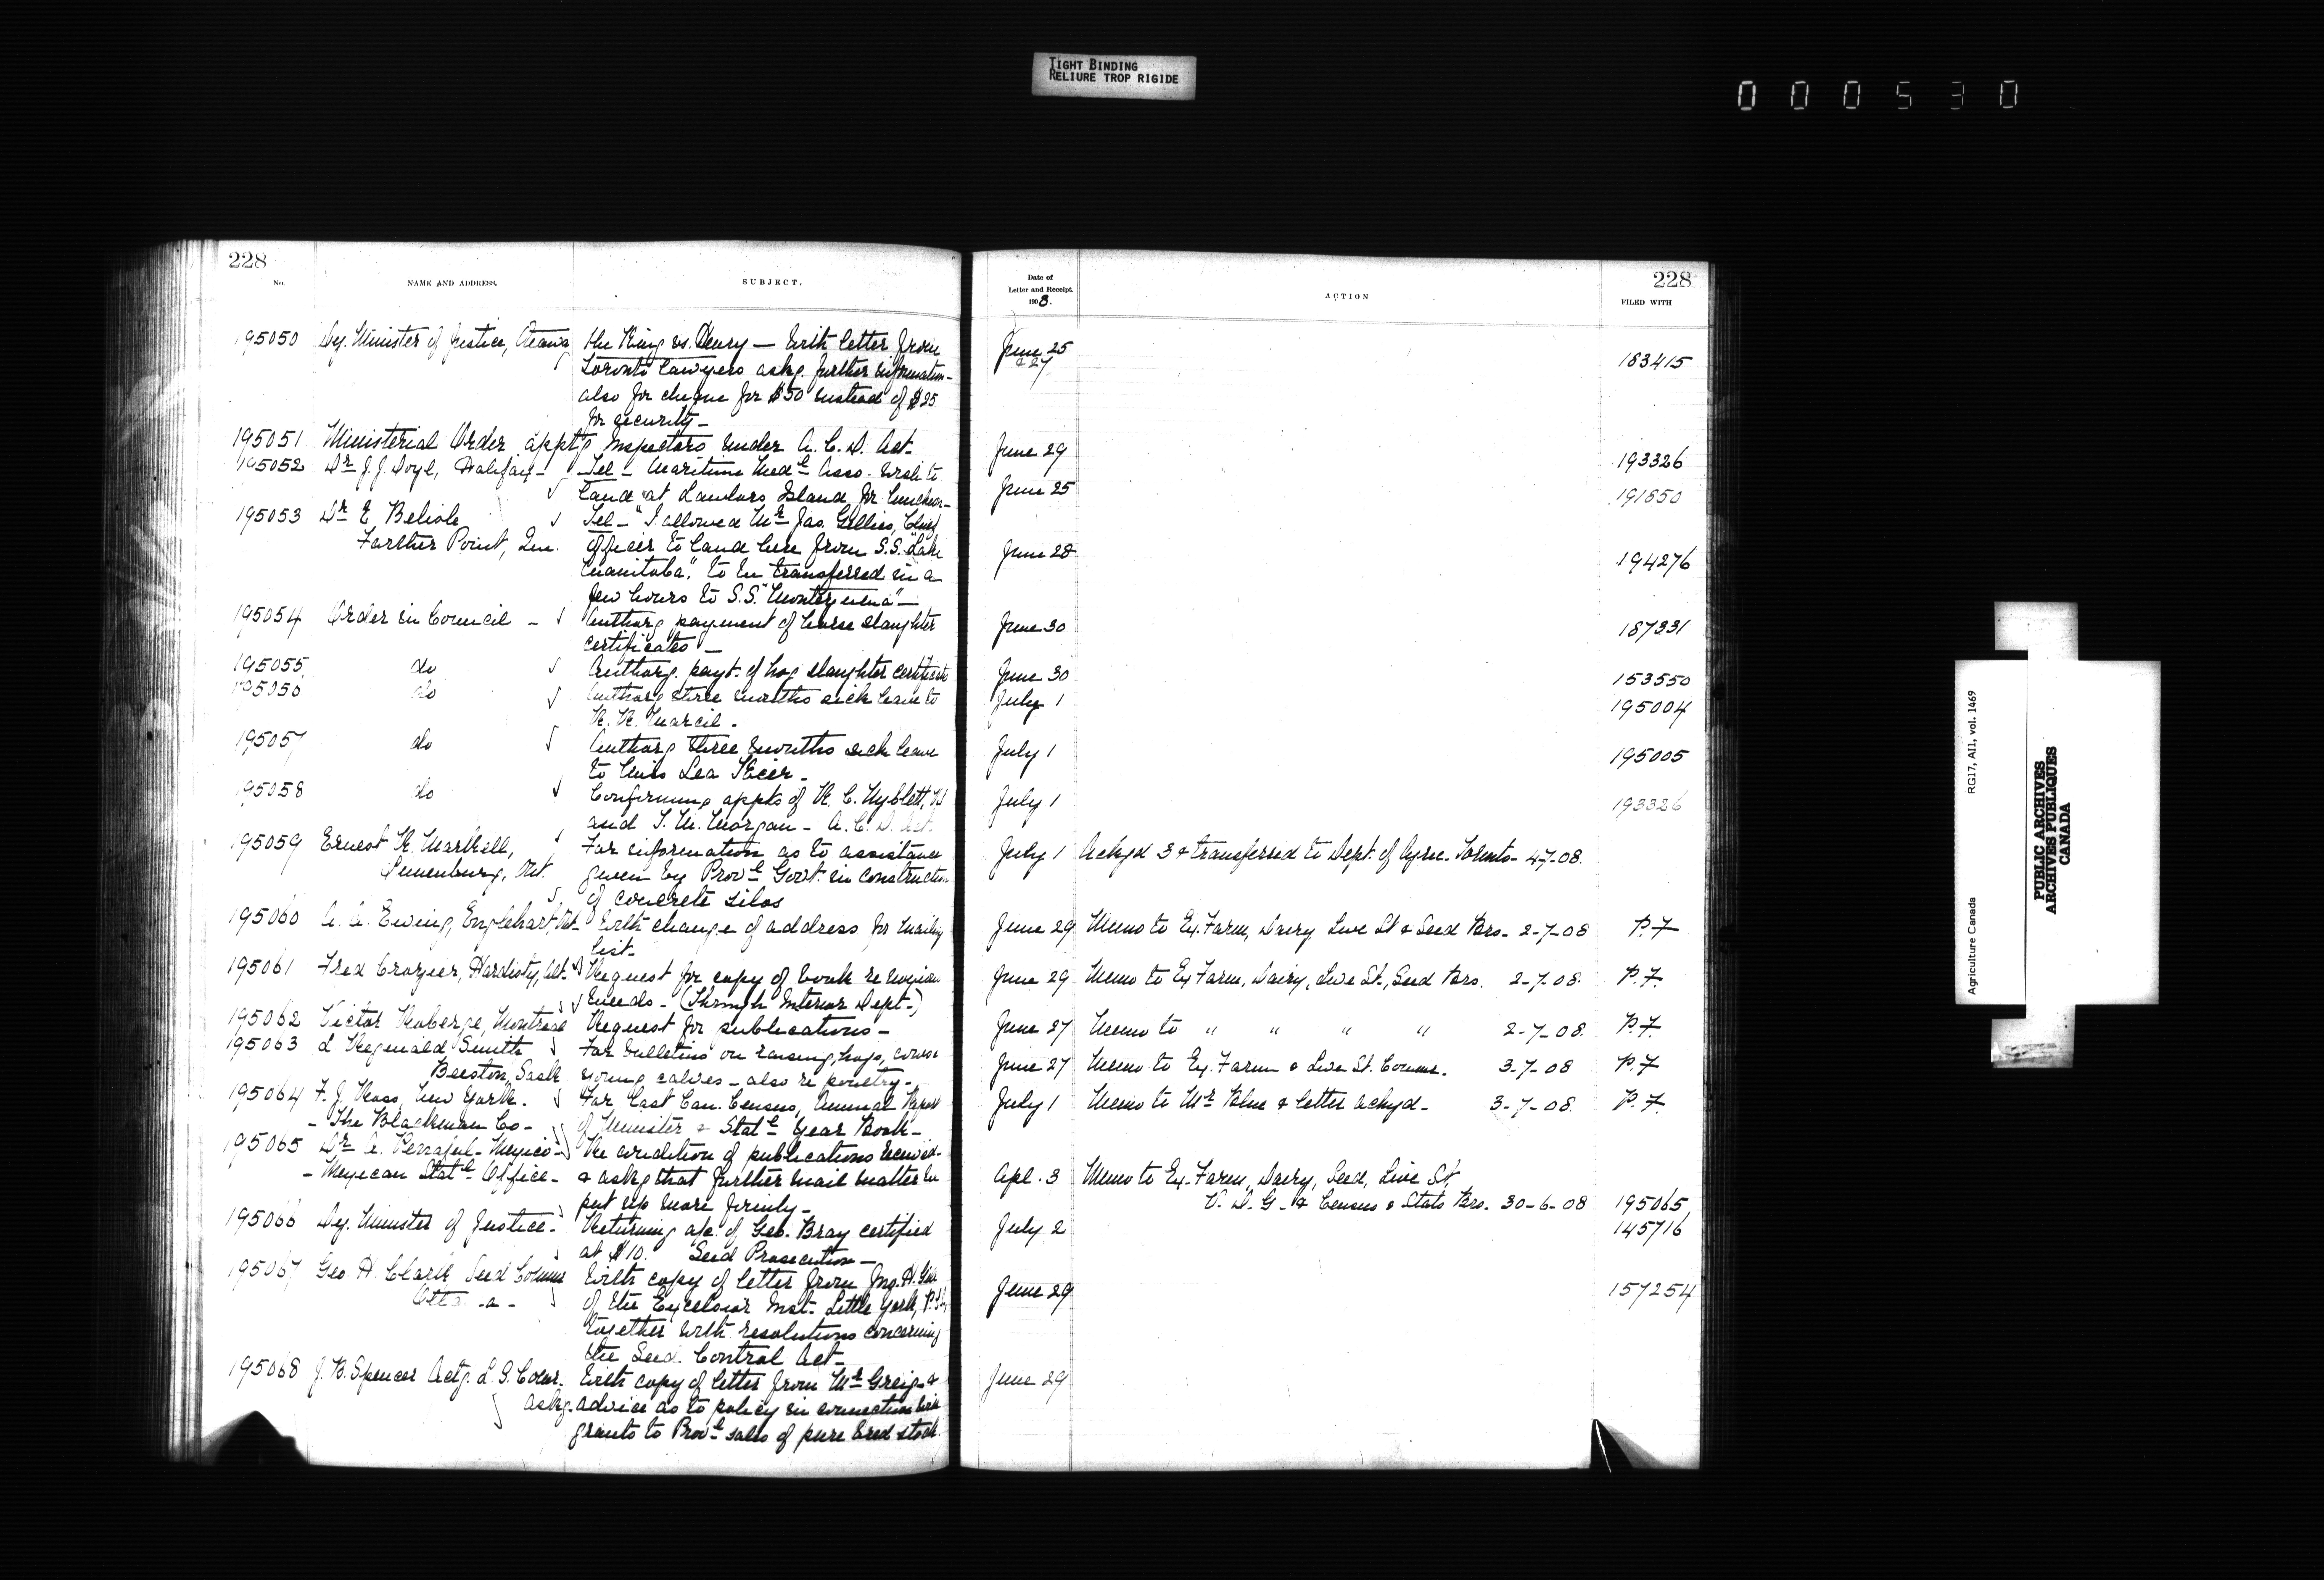 TIGHT BINDING
RELIURE TROP RIGIDE
000530
228
No.
NAME AND ADDRESS.
SUBJECT.
195050 Dy. Minister of Justice, Ottawa The King vs. Henry — With letter from
Toronto Lawyers askg. further information-
also for cheque for $50 instead of $25
for security —
195051 Ministerial Order apptg Inspectors under A. C. D. Act-
195052 Dr J. J. Doyl, Halifax - Tel - Maritime Medl Asso. wish to
land at Lawlors Island for luncheon-
195053 Dr E Belisle Tel - "I allowed Mr Jas. Gillies, Chief
Farther Point, Que. Officer to land here from S.S. "Lake
Manitoba". to be transferred in a
few hours to S.S. "Montezuma" —
195054 Order in Council - Authorg payment of horse slaughter
certificates —
195055 do Authorg. payt. of hog slaughter certificate
195056 do Authorg three months sick leave to
R. R. Marcil.
195057 do Authorg three months sick leave
to Miss Lea
195058 do Confirming appts of R. C. Nyblett,
and T. M. Morgan - A. C. D. Act.
195059 Ernest R. Markell, For information as to assistance
Lunenburg, Ont. given by Provl Govt. in construction
of concrete silos
195060 A. A. Ewing, Englehart, Ont- With change of address for mailing
list-
195061 Fred Crozier, Hardisty, Alt. Request for copy of book re
Weeds - (Through Interior Dept-)
195062 Victor Roberge, Montreal Request for publications -
195063 L Reginald Smith For bulletins on raising, hogs, cows
Beeston, Sask young calves - also re poultry -
195064 F. J. Ross, New York. For Last Can. Census, Annual Report
- The Blackman Co - of Minister & Statl Year Book -
195065 Dr A. Penafiel - Mexico - Re condition of publications received-
- Mexican Statl Office - & askg that further mail matter be
put up more firmly -
195066 Dy. Minister of Justice - Returning a/c. of Geo. Bray certified
at $10. Seed Prosecution —
195067 Geo H. Clark Seed Commr With copy of letter from Jno. H.
Ottawa - of the Excelsior Inst. Little York, P.E.I.
together with resolutions concerning
the Seed Control Act -
195068 J. B. Spencer Actg. L. S. Comr. With copy of letter from Mr Greig &
askg. advice as to policy in connection with
grants to Provl sales of pure bred stock
228
Date of
Letter and Receipt.
1908.
ACTION
FILED WITH
June 25
& 27 183415
June 29 193326
June 25 191550
June 28 194276
June 30 187331
June 30 153550
July 1 195004
July 1 195005
July 1 193326
July 1 Ackgd 3 & transferred to Dept. of Agric. Toronto - 4-7-08.
June 29 Memo to Ex. Farm, Dairy, Live St & Seed Brs - 2-7-08 P.F
June 29 Memo to Ex Farm, Dairy, Live St., Seed Brs. 2-7-08. P.F.
June 27 Memo to " " " " 2-7-08. P.F.
June 27 Memo to Ex. Farm & Live St. Comms. 3-7-08 P.F
July 1 Memo to Mr Blue & letter ackgd - 3-7-08. P.F.
Apl. 3 Memo to Ex. Farm, Dairy, Seed, Live St,
V. D. G. & Census & Stats Brs. 30-6-08 195065
July 2 145716
June 29 157254
June 29
Agriculture Canada RG17, AI1, vol. 1469
PUBLIC ARCHIVES
ARCHIVES PUBLIQUES
CANADA